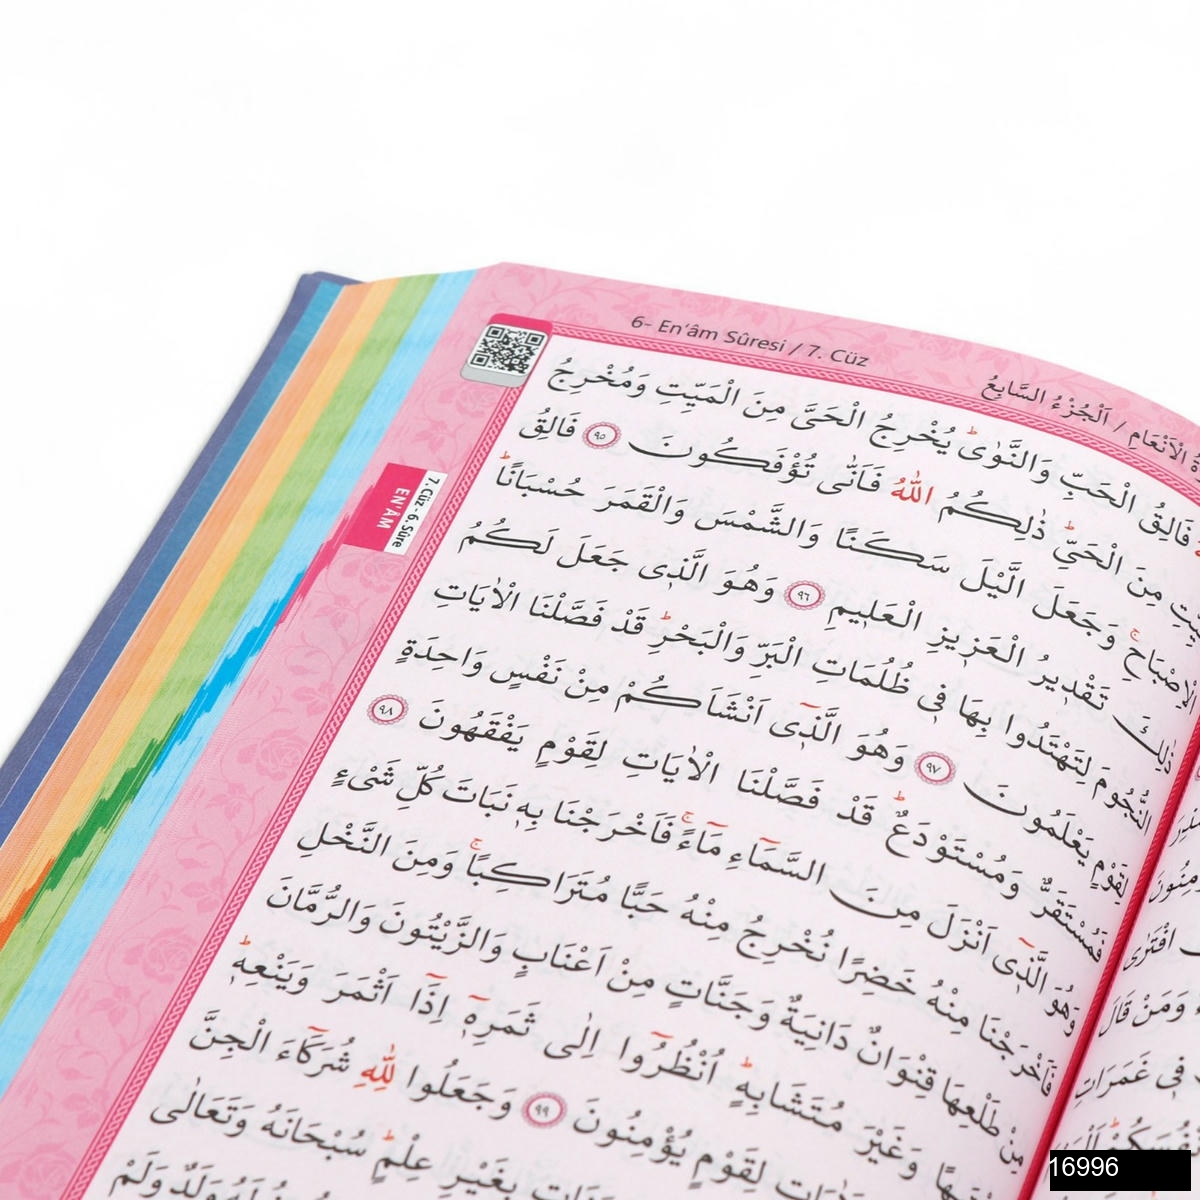 6- En'âm Sûresi / 7. Cüz
اَلْجُزْءُ السَّابِعُ / الْاَنْعَامِ
7. Cüz - 6. Sûre
EN'ÂM
فَالِقُ الْحَبِّ وَالنَّوٰىۜ يُخْرِجُ الْحَيَّ مِنَ الْمَيِّتِ وَمُخْرِجُ
مِنَ الْحَيِّۜ ذٰلِكُمُ اللّٰهُ فَاَنّٰى تُؤْفَكُونَ ﴿٩٥﴾ فَالِقُ
الْاِصْبَاحِۚ وَجَعَلَ الَّيْلَ سَكَنًا وَالشَّمْسَ وَالْقَمَرَ حُسْبَانًاۜ
ذٰلِكَ تَقْد۪يرُ الْعَز۪يزِ الْعَل۪يمِ ﴿٩٦﴾ وَهُوَ الَّذ۪ي جَعَلَ لَكُمُ
النُّجُومَ لِتَهْتَدُوا بِهَا ف۪ي ظُلُمَاتِ الْبَرِّ وَالْبَحْرِۜ قَدْ فَصَّلْنَا الْاٰيَاتِ
لِقَوْمٍ يَعْلَمُونَ ﴿٩٧﴾ وَهُوَ الَّذ۪ٓي اَنْشَاَكُمْ مِنْ نَفْسٍ وَاحِدَةٍ
فَمُسْتَقَرٌّ وَمُسْتَوْدَعٌۜ قَدْ فَصَّلْنَا الْاٰيَاتِ لِقَوْمٍ يَفْقَهُونَ ﴿٩٨﴾
وَهُوَ الَّذ۪ٓي اَنْزَلَ مِنَ السَّمَٓاءِ مَٓاءًۚ فَاَخْرَجْنَا بِه۪ نَبَاتَ كُلِّ شَيْءٍ
فَاَخْرَجْنَا مِنْهُ خَضِرًا نُخْرِجُ مِنْهُ حَبًّا مُتَرَاكِبًاۚ وَمِنَ النَّخْلِ
مِنْ طَلْعِهَا قِنْوَانٌ دَانِيَةٌ وَجَنَّاتٍ مِنْ اَعْنَابٍ وَالزَّيْتُونَ وَالرُّمَّانَ
وَغَيْرَ مُتَشَابِهٍۜ اُنْظُرُٓوا اِلٰى ثَمَرِه۪ٓ اِذَٓا اَثْمَرَ وَيَنْعِه۪ۜ
لِقَوْمٍ يُؤْمِنُونَ ﴿٩٩﴾ وَجَعَلُوا لِلّٰهِ شُرَكَٓاءَ الْجِنَّ
بِغَيْرِ عِلْمٍۜ سُبْحَانَهُ وَتَعَالٰى
وَلَدٌ وَلَمْ
افْتَرٰى
وَمَنْ قَالَ
ف۪ي غَمَرَاتِ
16996